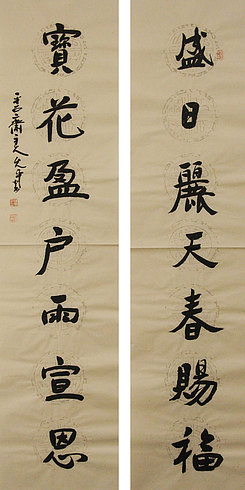 盛日麗天春賜福
寶花盈户雨宣恩